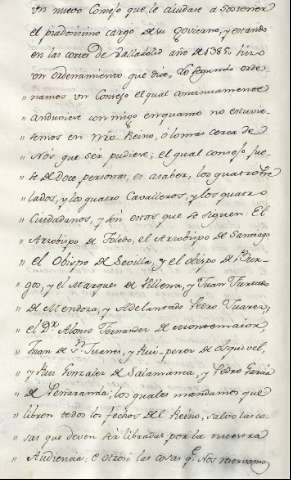 un nuevo Consejo que le ayudase a sostener
el pradissimo cargo de su govierno, y estando
en las cortes de Valladolid año de 1385. hizo
un Ordenamiento que dice, Lo Segundo orde-
namos un Consejo el qual continuamente
anduviese con migo en quanto no estuvie-
" semos en nro. Reino, ó lo mas cerca de
" Nós, que ser pudiere; el qual consejo fue-
" se de doce personas, es a saber, los quatro Pre-
" lados, y los quatro Cavalleros, y los quatro
" Ciudadanos, y son estos que se siguen. El
" Arzobispo de Toledo, el Arzobispo de Santiago
" el Obispo de Sevilla, y el Obispo de Bur-
" gos, y el Marques de Villena, y Juan Furtado
" de Mendoza, y Adelantado Pedro Juarez,
" el Dn. Alonso Fernandez de Montemaior,
" Juan de Sn. Juanes, y Rui-perez de Esquivel,
" y Rui Gonzalez de Salamanca, y Pedro Garcia
" de Peñaranda, los quales mandamos que
" libren todos los fechos del Reino, salvo las co-
" sas que deven ser libradas por la nuestra
" Audiencia; e otrosi las cosas q. Nós reservamos